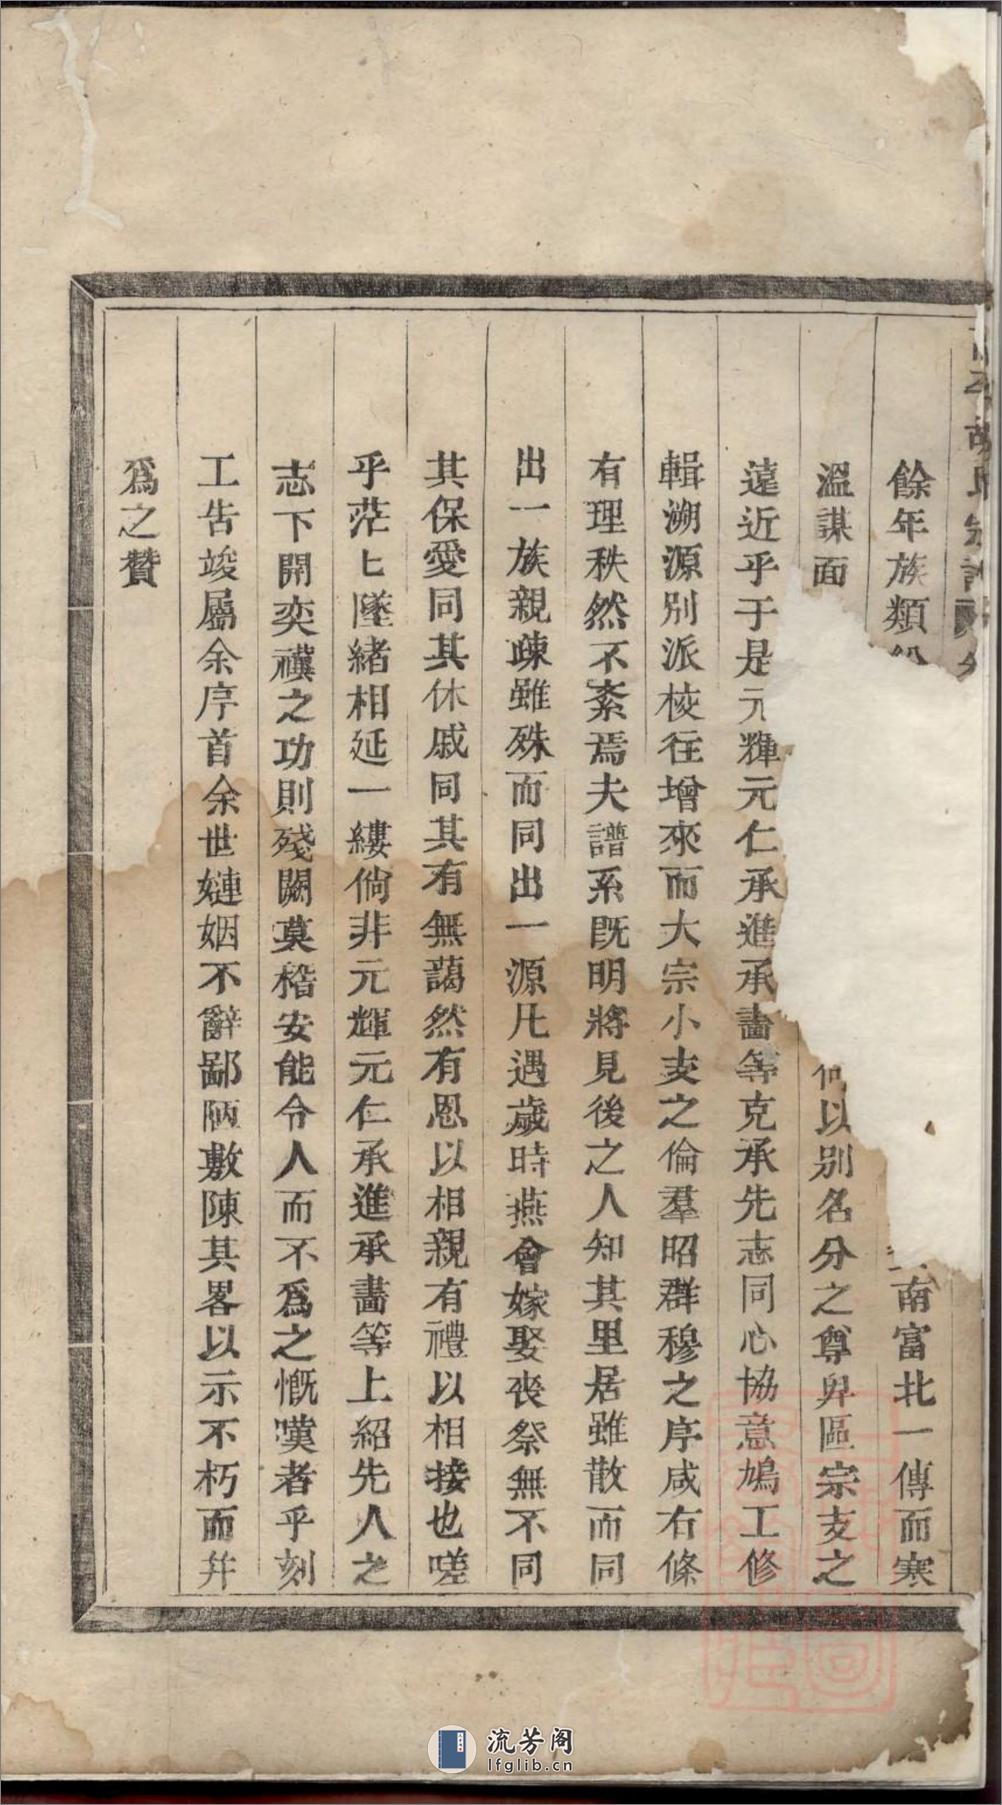 餘年族類
南富北一傳而寒
溫謀面
以别名分之尊卑區宗支之
遠近乎于是元輝元仁承進承畵等克承先志同心協意鳩工修
輯溯源别派核往增來而大宗小支之倫羣昭群穆之序咸右條
有理秩然不紊焉夫譜系旣明將見後之人知其里居雖散而同
出一族親疎雖殊而同出一源凡遇歲時燕會嫁娶喪祭無不同
其保愛同其休戚同其有無藹然有恩以相親有禮以相接也嗟
乎茫匕墜緒相延一縷倘非元輝元仁承進承畵等上紹先人之
志下開奕禩之功則殘闕莫稽安能令人而不爲之慨嘆者乎刻
工告竣屬余序首余世婕姻不辭鄙陋敷陳其畧以示不朽而幷
爲之贊
流芳阁
lfglib.cn